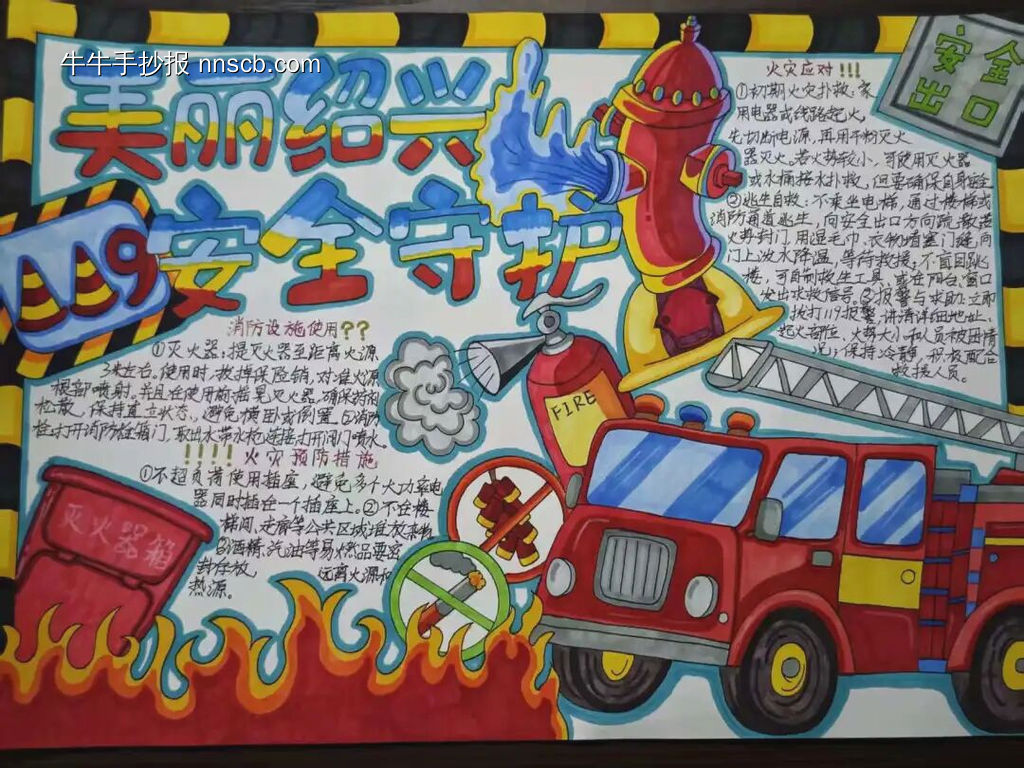 牛牛手抄报 nnscb.com
美丽绍兴
安全守护
119
安全
出口
火灾应对!!!
①初期火灾扑救:家
用电器或线路起火,
先切断电源,再用干粉灭火
器灭火。若火势较小,可使用灭火器
或水桶接水扑救,但要确保自身安全
②逃生自救:不乘坐电梯,通过楼梯或
消防通道逃生,向安全出口方向疏散若
火势封门,用湿毛巾、衣物堵塞门缝,向
门上泼水降温,等待救援;不盲目跳
楼,可自制救生工具,或在阳台、窗口
发出求救信号。③报警与求助:立即
拨打119报警,讲清详细地址、
起火部位、火势大小和人员被困情
况;保持冷静,积极配合
救援人员。
消防设施使用??
①灭火器:提灭火器至距离火源
3米左右,使用时,拔掉保险销,对准火源
根部喷射。并且在使用前摇晃灭火器,确保粉剂
松散,保持直立状态,避免横卧或倒置。②消防
栓:打开消防栓箱门,取出水带水枪,连接打开阀门喷水。
!!!!火灾预防措施
①不超负荷使用插座,避免多个大功率电
器同时插在一个插座上。②不在楼
梯间、走廊等公共区域堆放杂物
③酒精、汽油等易燃品要密
封存放 远离火源和
热源。
灭火器箱
FIRE